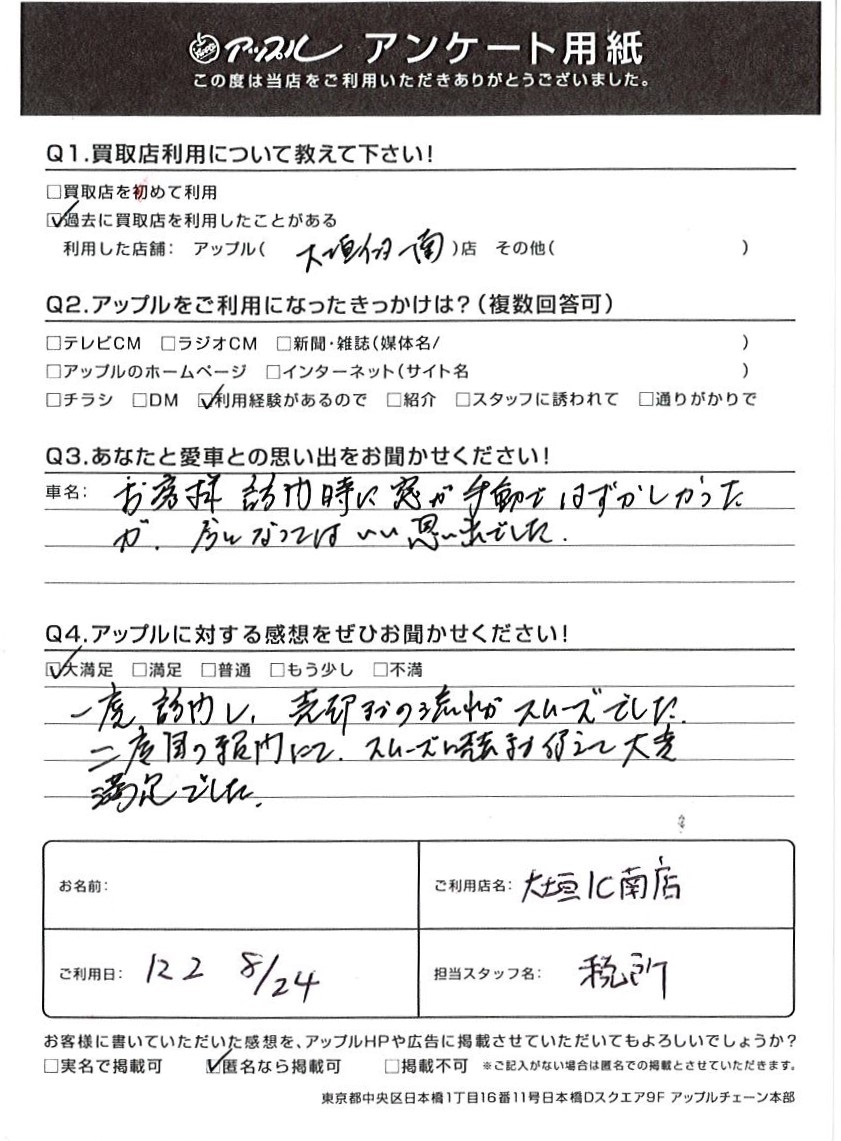 アップル アンケート用紙
この度は当店をご利用いただきありがとうございました。
Q1.買取店利用について教えて下さい!
□買取店を初めて利用
☑過去に買取店を利用したことがある
利用した店舗: アップル( 大垣 南 )店 その他( )
Q2.アップルをご利用になったきっかけは?(複数回答可)
□テレビCM □ラジオCM □新聞・雑誌(媒体名/ )
□アップルのホームページ □インターネット(サイト名 )
□チラシ □DM ☑利用経験があるので □紹介 □スタッフに誘われて □通りがかりで
Q3.あなたと愛車との思い出をお聞かせください!
車名: お客様 訪問時に 窓が 手動で はずかしかった
が、今となってはいい思い出でした.
Q4.アップルに対する感想をぜひお聞かせください!
☑大満足 □満足 □普通 □もう少し □不満
一度 訪問し、売却までの流れが スムーズでした.
二度目の訪問にて、スムーズに 大変
満足でした.
お名前:
ご利用店名: 大垣IC南店
ご利用日: R22 8/24
担当スタッフ名: 税所
お客様に書いていただいた感想を、アップルHPや広告に掲載させていただいてもよろしいでしょうか?
□実名で掲載可 ☑匿名なら掲載可 □掲載不可 ※ご記入がない場合は匿名での掲載とさせていただきます。
東京都中央区日本橋1丁目16番11号日本橋Dスクエア9F アップルチェーン本部